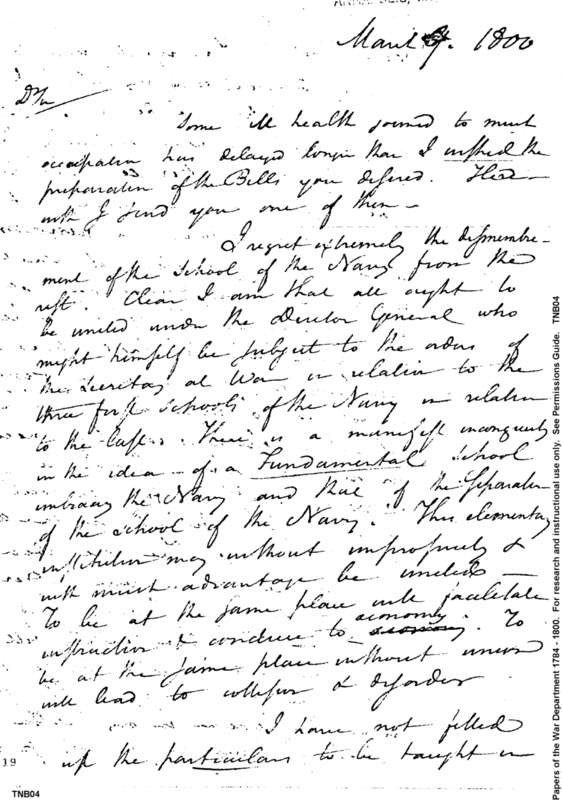 March 9. 1800
Dr Sir
Some ill health joined to much
occupation has delayed longer than I wished the
preparation of the Bills you desired. Here-
with I send you one of them –
I regret extremely the dismembre-
ment of the School of the Navy from the
rest. Clear I am that all ought to
be united under the Director General who
might himself be subject to the orders of
the Secretary at War in relation to the
three first schools of the Navy in relation
to the last. There is a manifest incongruity
in the idea of a Fundamental School
embracing the Navy and that of the Separation
of the School of the Navy. This elementary
institution may without impropriety &
with much advantage be united –
To be at the same place will facilitate
instruction & conduce to economy. To
be at the same place without union
will lead to collision & disorder
I have not filled
up the particulars to be taught in
19
TNB04
Papers of the War Department 1784 - 1800. For research and instructional use only. See Permissions Guide. TNB04